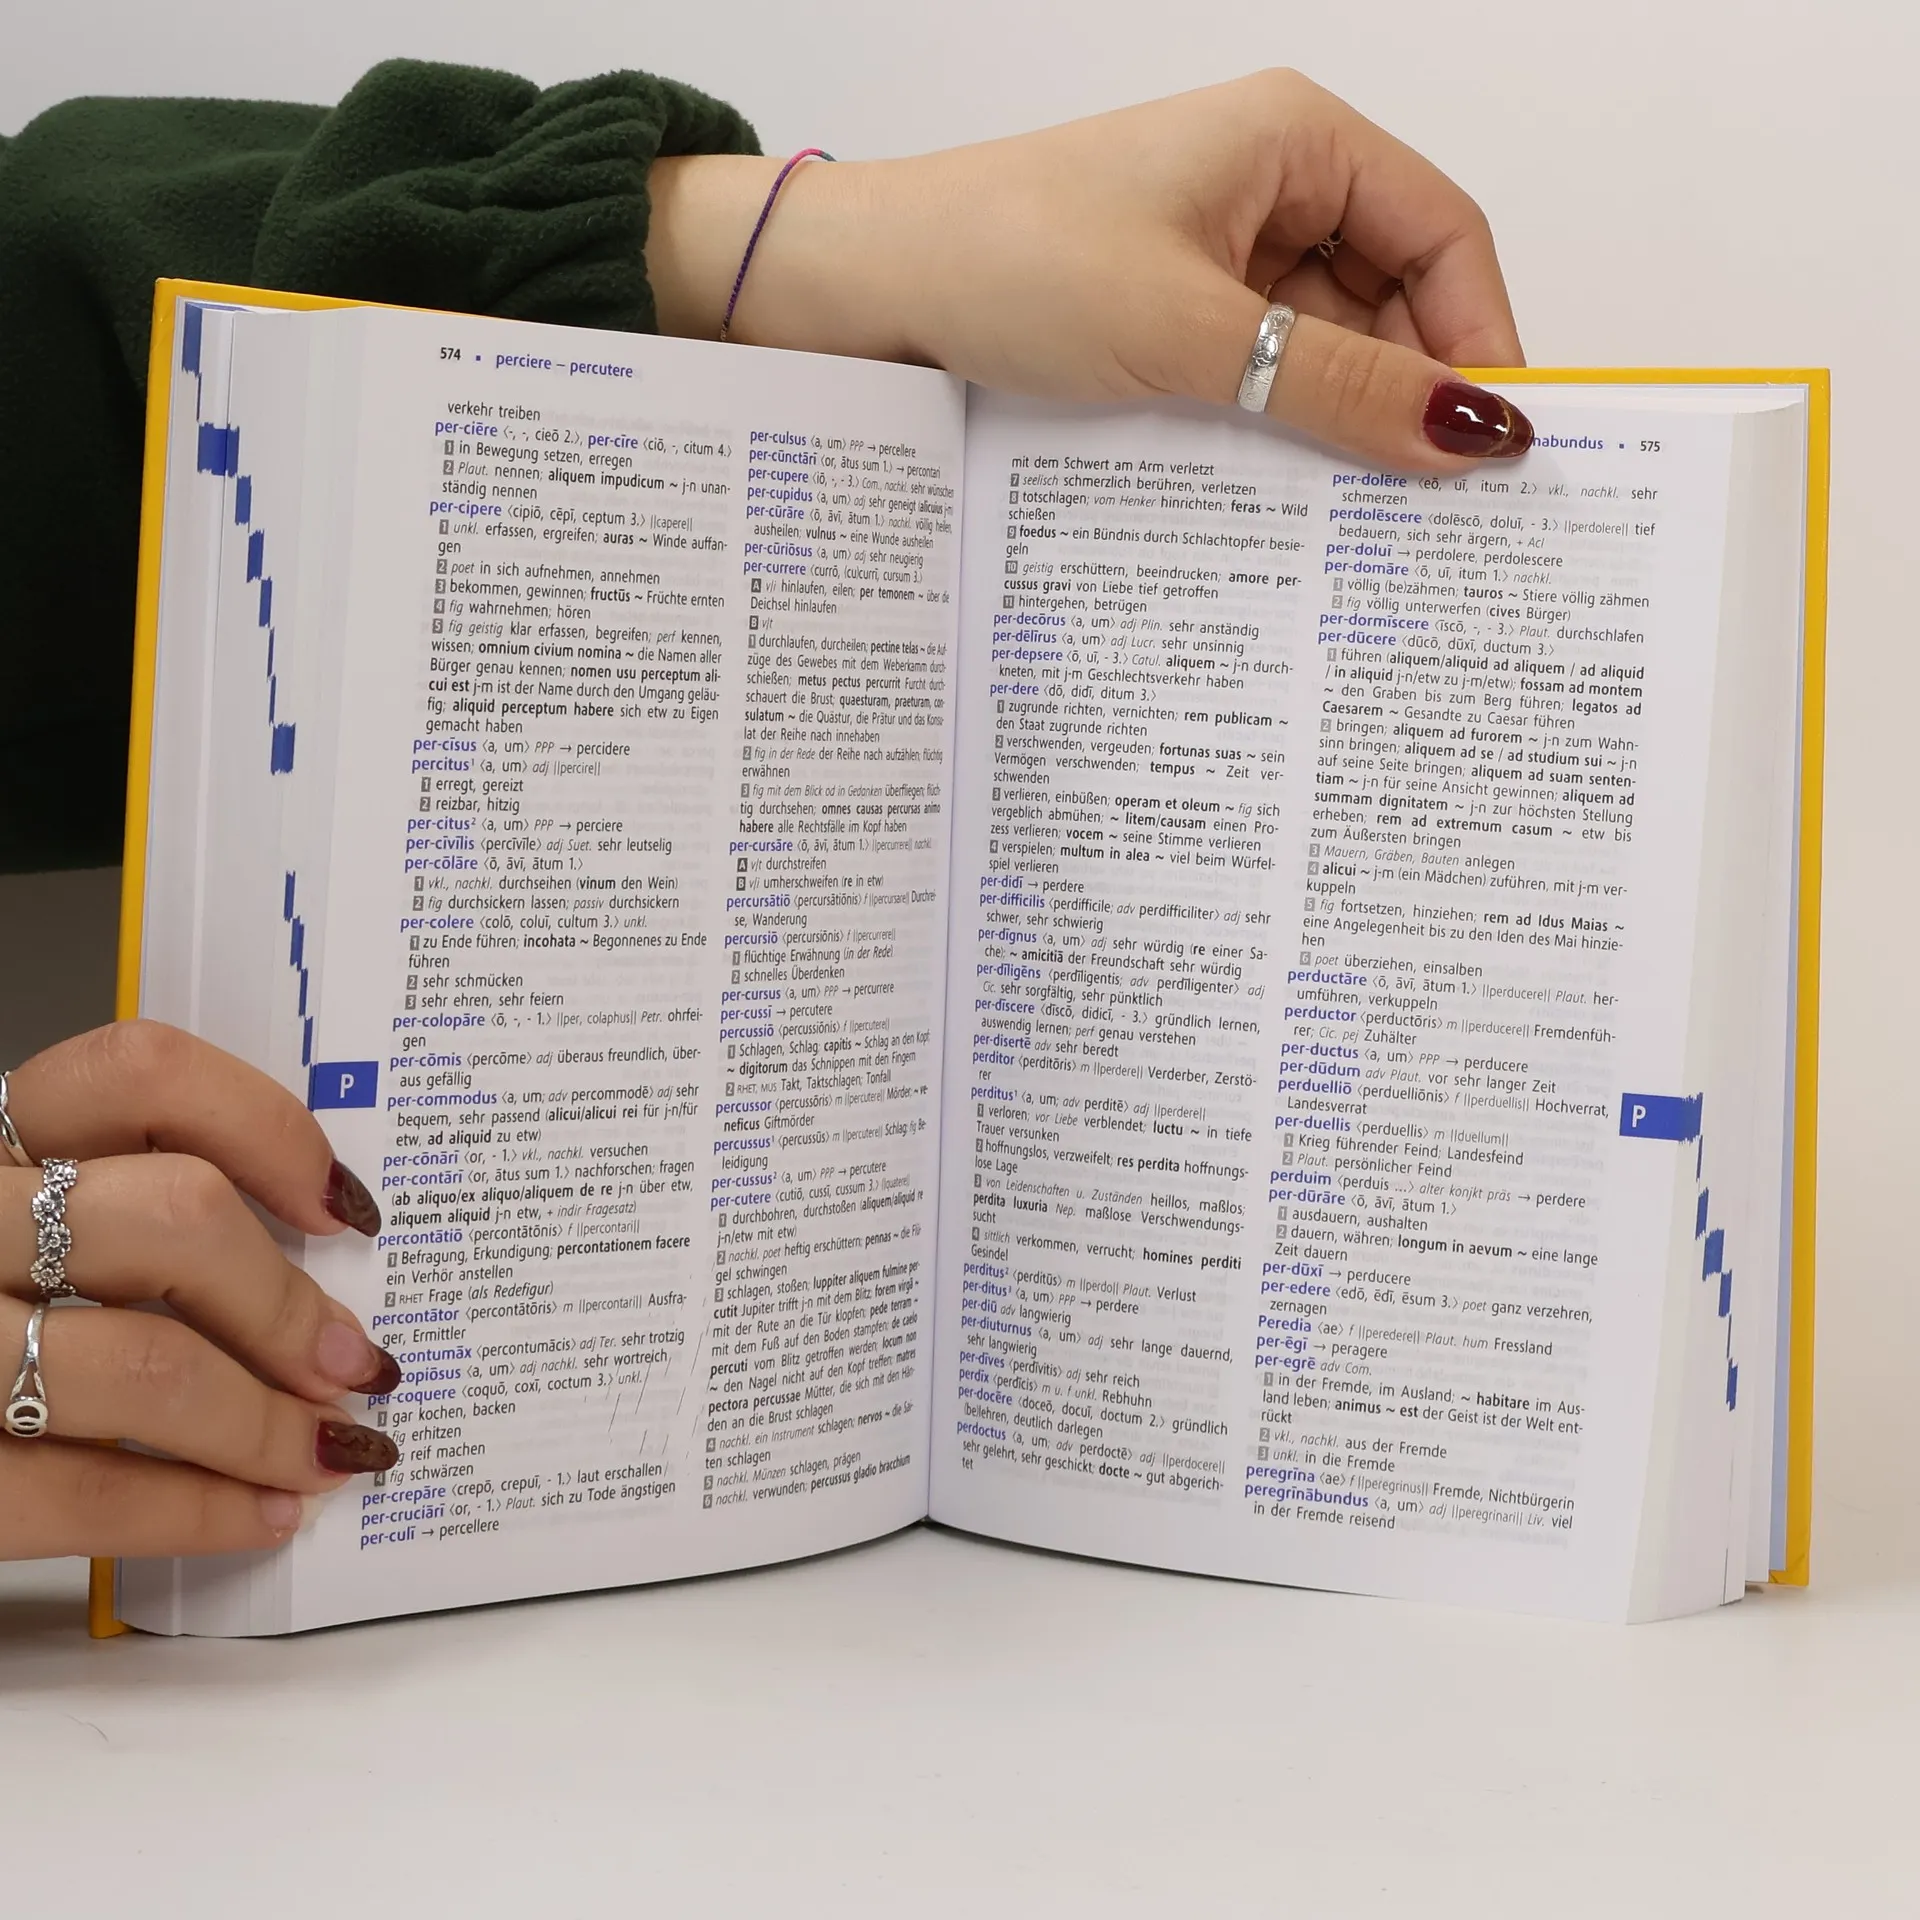 574 ▪ perciere – percutere
verkehr treiben
per-ciēre ⟨-, -, cieō 2.⟩, per-cīre ⟨ciō, -, citum 4.⟩
1 in Bewegung setzen, erregen
2 Plaut. nennen; aliquem impudicum ~ j-n unan-
ständig nennen
per-cipere ⟨cipiō, cēpī, ceptum 3.⟩ ||capere||
1 unkl. erfassen, ergreifen; auras ~ Winde auffan-
gen
2 poet in sich aufnehmen, annehmen
3 bekommen, gewinnen; fructūs ~ Früchte ernten
4 fig wahrnehmen; hören
5 fig geistig klar erfassen, begreifen; perf kennen,
wissen; omnium civium nomina ~ die Namen aller
Bürger genau kennen; nomen usu perceptum ali-
cui est j-m ist der Name durch den Umgang geläu-
fig; aliquid perceptum habere sich etw zu Eigen
gemacht haben
per-cīsus ⟨a, um⟩ PPP → percidere
percitus¹ ⟨a, um⟩ adj ||percire||
1 erregt, gereizt
2 reizbar, hitzig
per-citus² ⟨a, um⟩ PPP → perciere
per-cīvīlis ⟨percīvīle⟩ adj Suet. sehr leutselig
per-cōlāre ⟨ō, āvī, ātum 1.⟩
1 vkl., nachkl. durchseihen (vinum den Wein)
2 fig durchsickern lassen; passiv durchsickern
per-colere ⟨colō, coluī, cultum 3.⟩ unkl.
1 zu Ende führen; incohata ~ Begonnenes zu Ende
führen
2 sehr schmücken
3 sehr ehren, sehr feiern
per-colopāre ⟨ō, -, - 1.⟩ ||per, colaphus|| Petr. ohrfei-
gen
per-cōmis ⟨percōme⟩ adj überaus freundlich, über-
aus gefällig
per-commodus ⟨a, um; adv percommodē⟩ adj sehr
bequem, sehr passend (alicui/alicui rei für j-n/für
etw, ad aliquid zu etw)
per-cōnārī ⟨or, - 1.⟩ vkl., nachkl. versuchen
per-contārī ⟨or, ātus sum 1.⟩ nachforschen; fragen
(ab aliquo/ex aliquo/aliquem de re j-n über etw,
aliquem aliquid j-n etw, + indir Fragesatz)
percontātiō ⟨percontātōnis⟩ f ||percontari||
1 Befragung, Erkundigung; percontationem facere
ein Verhör anstellen
2 RHET Frage (als Redefigur)
percontātor ⟨percontātōris⟩ m ||percontari|| Ausfra-
ger, Ermittler
-contumāx ⟨percontumācis⟩ adj Ter. sehr trotzig
copiōsus ⟨a, um⟩ adj nachkl. sehr wortreich
per-coquere ⟨coquō, coxī, coctum 3.⟩ unkl.
1 gar kochen, backen
fig erhitzen
reif machen
4 fig schwärzen
per-crepāre ⟨crepō, crepuī, - 1.⟩ laut erschallen
per-cruciārī ⟨or, - 1.⟩ Plaut. sich zu Tode ängstigen
per-culī → percellere
P
per-culsus ⟨a, um⟩ PPP → percellere
per-cūnctārī ⟨or, ātus sum 1.⟩ → percontari
per-cupere ⟨iō, -, - 3.⟩ Com., nachkl. sehr wünschen
per-cupidus ⟨a, um⟩ adj sehr geneigt (alicuius j-m)
per-cūrāre ⟨ō, āvī, ātum 1.⟩ nachkl. völlig heilen,
ausheilen; vulnus ~ eine Wunde ausheilen
per-cūriōsus ⟨a, um⟩ adj sehr neugierig
per-currere ⟨currō, (cu)currī, cursum 3.⟩
A v/i hinlaufen, eilen; per temonem ~ über die
Deichsel hinlaufen
B v/t
1 durchlaufen, durcheilen; pectine telas ~ die Auf-
züge des Gewebes mit dem Weberkamm durch-
schießen; metus pectus percurrit Furcht durch-
schauert die Brust; quaesturam, praeturam, con-
sulatum ~ die Quästur, die Prätur und das Konsu-
lat der Reihe nach innehaben
2 fig in der Rede der Reihe nach aufzählen, flüchtig
erwähnen
3 fig mit dem Blick od in Gedanken überfliegen; flüch-
tig durchsehen; omnes causas percursas animo
habere alle Rechtsfälle im Kopf haben
per-cursāre ⟨ō, āvī, ātum 1.⟩ ||percurrere|| nachkl.
A v/t durchstreifen
B v/i umherschweifen (re in etw)
percursātiō ⟨percursātiōnis⟩ f ||percursare|| Durchrei-
se, Wanderung
percursiō ⟨percursiōnis⟩ f ||percurrere||
1 flüchtige Erwähnung (in der Rede)
2 schnelles Überdenken
per-cursus ⟨a, um⟩ PPP → percurrere
per-cussī → percutere
percussiō ⟨percussiōnis⟩ f ||percutere||
1 Schlagen, Schlag; capitis ~ Schlag an den Kopf;
~ digitorum das Schnippen mit den Fingern
2 RHET, MUS Takt, Taktschlagen; Tonfall
percussor ⟨percussōris⟩ m ||percutere|| Mörder; ~ ve-
neficus Giftmörder
percussus¹ ⟨percussūs⟩ m ||percutere|| Schlag; fig Be-
leidigung
per-cussus² ⟨a, um⟩ PPP → percutere
per-cutere ⟨cutiō, cussī, cussum 3.⟩ ||quatere||
1 durchbohren, durchstoßen (aliquem/aliquid re
j-n/etw mit etw)
2 nachkl. poet heftig erschüttern; pennas ~ die Flü-
gel schwingen
3 schlagen, stoßen; Iuppiter aliquem fulmine per-
cutit Jupiter trifft j-n mit dem Blitz; forem virgā ~
mit der Rute an die Tür klopfen; pede terram ~
mit dem Fuß auf den Boden stampfen; de caelo
percuti vom Blitz getroffen werden; locum non
~ den Nagel nicht auf den Kopf treffen; matres
pectora percussae Mütter, die sich mit den Hän-
den an die Brust schlagen
4 nachkl. ein Instrument schlagen; nervos ~ die Sai-
ten schlagen
5 nachkl. Münzen schlagen, prägen
6 nachkl. verwunden; percussus gladio bracchium
nabundus ▪ 575
mit dem Schwert am Arm verletzt
7 seelisch schmerzlich berühren, verletzen
8 totschlagen; vom Henker hinrichten; feras ~ Wild
schießen
9 foedus ~ ein Bündnis durch Schlachtopfer besie-
geln
10 geistig erschüttern, beeindrucken; amore per-
cussus gravi von Liebe tief getroffen
11 hintergehen, betrügen
per-decōrus ⟨a, um⟩ adj Plin. sehr anständig
per-dēlīrus ⟨a, um⟩ adj Lucr. sehr unsinnig
per-depsere ⟨ō, uī, - 3.⟩ Catul. aliquem ~ j-n durch-
kneten, mit j-m Geschlechtsverkehr haben
per-dere ⟨dō, didī, ditum 3.⟩
1 zugrunde richten, vernichten; rem publicam ~
den Staat zugrunde richten
2 verschwenden, vergeuden; fortunas suas ~ sein
Vermögen verschwenden; tempus ~ Zeit ver-
schwenden
3 verlieren, einbüßen; operam et oleum ~ fig sich
vergeblich abmühen; ~ litem/causam einen Pro-
zess verlieren; vocem ~ seine Stimme verlieren
4 verspielen; multum in alea ~ viel beim Würfel-
spiel verlieren
per-didī → perdere
per-difficilis ⟨perdifficile; adv perdifficiliter⟩ adj sehr
schwer, sehr schwierig
per-dīgnus ⟨a, um⟩ adj sehr würdig (re einer Sa-
che); ~ amicitiā der Freundschaft sehr würdig
per-dīligēns ⟨perdīligentis; adv perdīligenter⟩ adj
Cic. sehr sorgfältig, sehr pünktlich
per-dīscere ⟨dīscō, didicī, - 3.⟩ gründlich lernen,
auswendig lernen; perf genau verstehen
per-disertē adv sehr beredt
perditor ⟨perditōris⟩ m ||perdere|| Verderber, Zerstö-
rer
perditus¹ ⟨a, um; adv perditē⟩ adj ||perdere||
1 verloren; vor Liebe verblendet; luctu ~ in tiefe
Trauer versunken
2 hoffnungslos, verzweifelt; res perdita hoffnungs-
lose Lage
3 von Leidenschaften u. Zuständen heillos, maßlos;
perdita luxuria Nep. maßlose Verschwendungs-
sucht
4 sittlich verkommen, verrucht; homines perditi
Gesindel
perditus² ⟨perditūs⟩ m ||perdo|| Plaut. Verlust
per-ditus³ ⟨a, um⟩ PPP → perdere
per-diū adv langwierig
per-diuturnus ⟨a, um⟩ adj sehr lange dauernd,
sehr langwierig
per-dīves ⟨perdīvitis⟩ adj sehr reich
perdīx ⟨perdīcis⟩ m u. f unkl. Rebhuhn
per-docēre ⟨doceō, docuī, doctum 2.⟩ gründlich
(be)lehren, deutlich darlegen
perdoctus ⟨a, um; adv perdoctē⟩ adj ||perdocere||
sehr gelehrt, sehr geschickt; docte ~ gut abgerich-
tet
per-dolēre ⟨eō, uī, itum 2.⟩ vkl., nachkl. sehr
schmerzen
perdolēscere ⟨dolēscō, doluī, - 3.⟩ ||perdolere|| tief
bedauern, sich sehr ärgern, + AcI
per-doluī → perdolere, perdolescere
per-domāre ⟨ō, uī, itum 1.⟩ nachkl.
1 völlig (be)zähmen; tauros ~ Stiere völlig zähmen
2 fig völlig unterwerfen (cives Bürger)
per-dormīscere ⟨īscō, -, - 3.⟩ Plaut. durchschlafen
per-dūcere ⟨dūcō, dūxī, ductum 3.⟩
1 führen (aliquem/aliquid ad aliquem / ad aliquid
/ in aliquid j-n/etw zu j-m/etw); fossam ad montem
~ den Graben bis zum Berg führen; legatos ad
Caesarem ~ Gesandte zu Caesar führen
2 bringen; aliquem ad furorem ~ j-n zum Wahn-
sinn bringen; aliquem ad se / ad studium sui ~ j-n
auf seine Seite bringen; aliquem ad suam senten-
tiam ~ j-n für seine Ansicht gewinnen; aliquem ad
summam dignitatem ~ j-n zur höchsten Stellung
erheben; rem ad extremum casum ~ etw bis
zum Äußersten bringen
3 Mauern, Gräben, Bauten anlegen
4 alicui ~ j-m (ein Mädchen) zuführen, mit j-m ver-
kuppeln
5 fig fortsetzen, hinziehen; rem ad Idus Maias ~
eine Angelegenheit bis zu den Iden des Mai hinzie-
hen
6 poet überziehen, einsalben
perductāre ⟨ō, āvī, ātum 1.⟩ ||perducere|| Plaut. her-
umführen, verkuppeln
perductor ⟨perductōris⟩ m ||perducere|| Fremdenfüh-
rer; Cic. pej Zuhälter
per-ductus ⟨a, um⟩ PPP → perducere
per-dūdum adv Plaut. vor sehr langer Zeit
perduelliō ⟨perduelliōnis⟩ f ||perduellis|| Hochverrat,
Landesverrat
per-duellis ⟨perduellis⟩ m ||duellum||
1 Krieg führender Feind; Landesfeind
2 Plaut. persönlicher Feind
perduim ⟨perduis ...⟩ alter konjkt präs → perdere
per-dūrāre ⟨ō, āvī, ātum 1.⟩
1 ausdauern, aushalten
2 dauern, währen; longum in aevum ~ eine lange
Zeit dauern
per-dūxī → perducere
per-edere ⟨edō, ēdī, ēsum 3.⟩ poet ganz verzehren,
zernagen
Peredia ⟨ae⟩ f ||peredere|| Plaut. hum Fressland
per-ēgī → peragere
per-egrē adv Com.
1 in der Fremde, im Ausland; ~ habitare im Aus-
land leben; animus ~ est der Geist ist der Welt ent-
rückt
2 vkl., nachkl. aus der Fremde
3 unkl. in die Fremde
peregrīna ⟨ae⟩ f ||peregrinus|| Fremde, Nichtbürgerin
peregrīnābundus ⟨a, um⟩ adj ||peregrinari|| Liv. viel
in der Fremde reisend
P